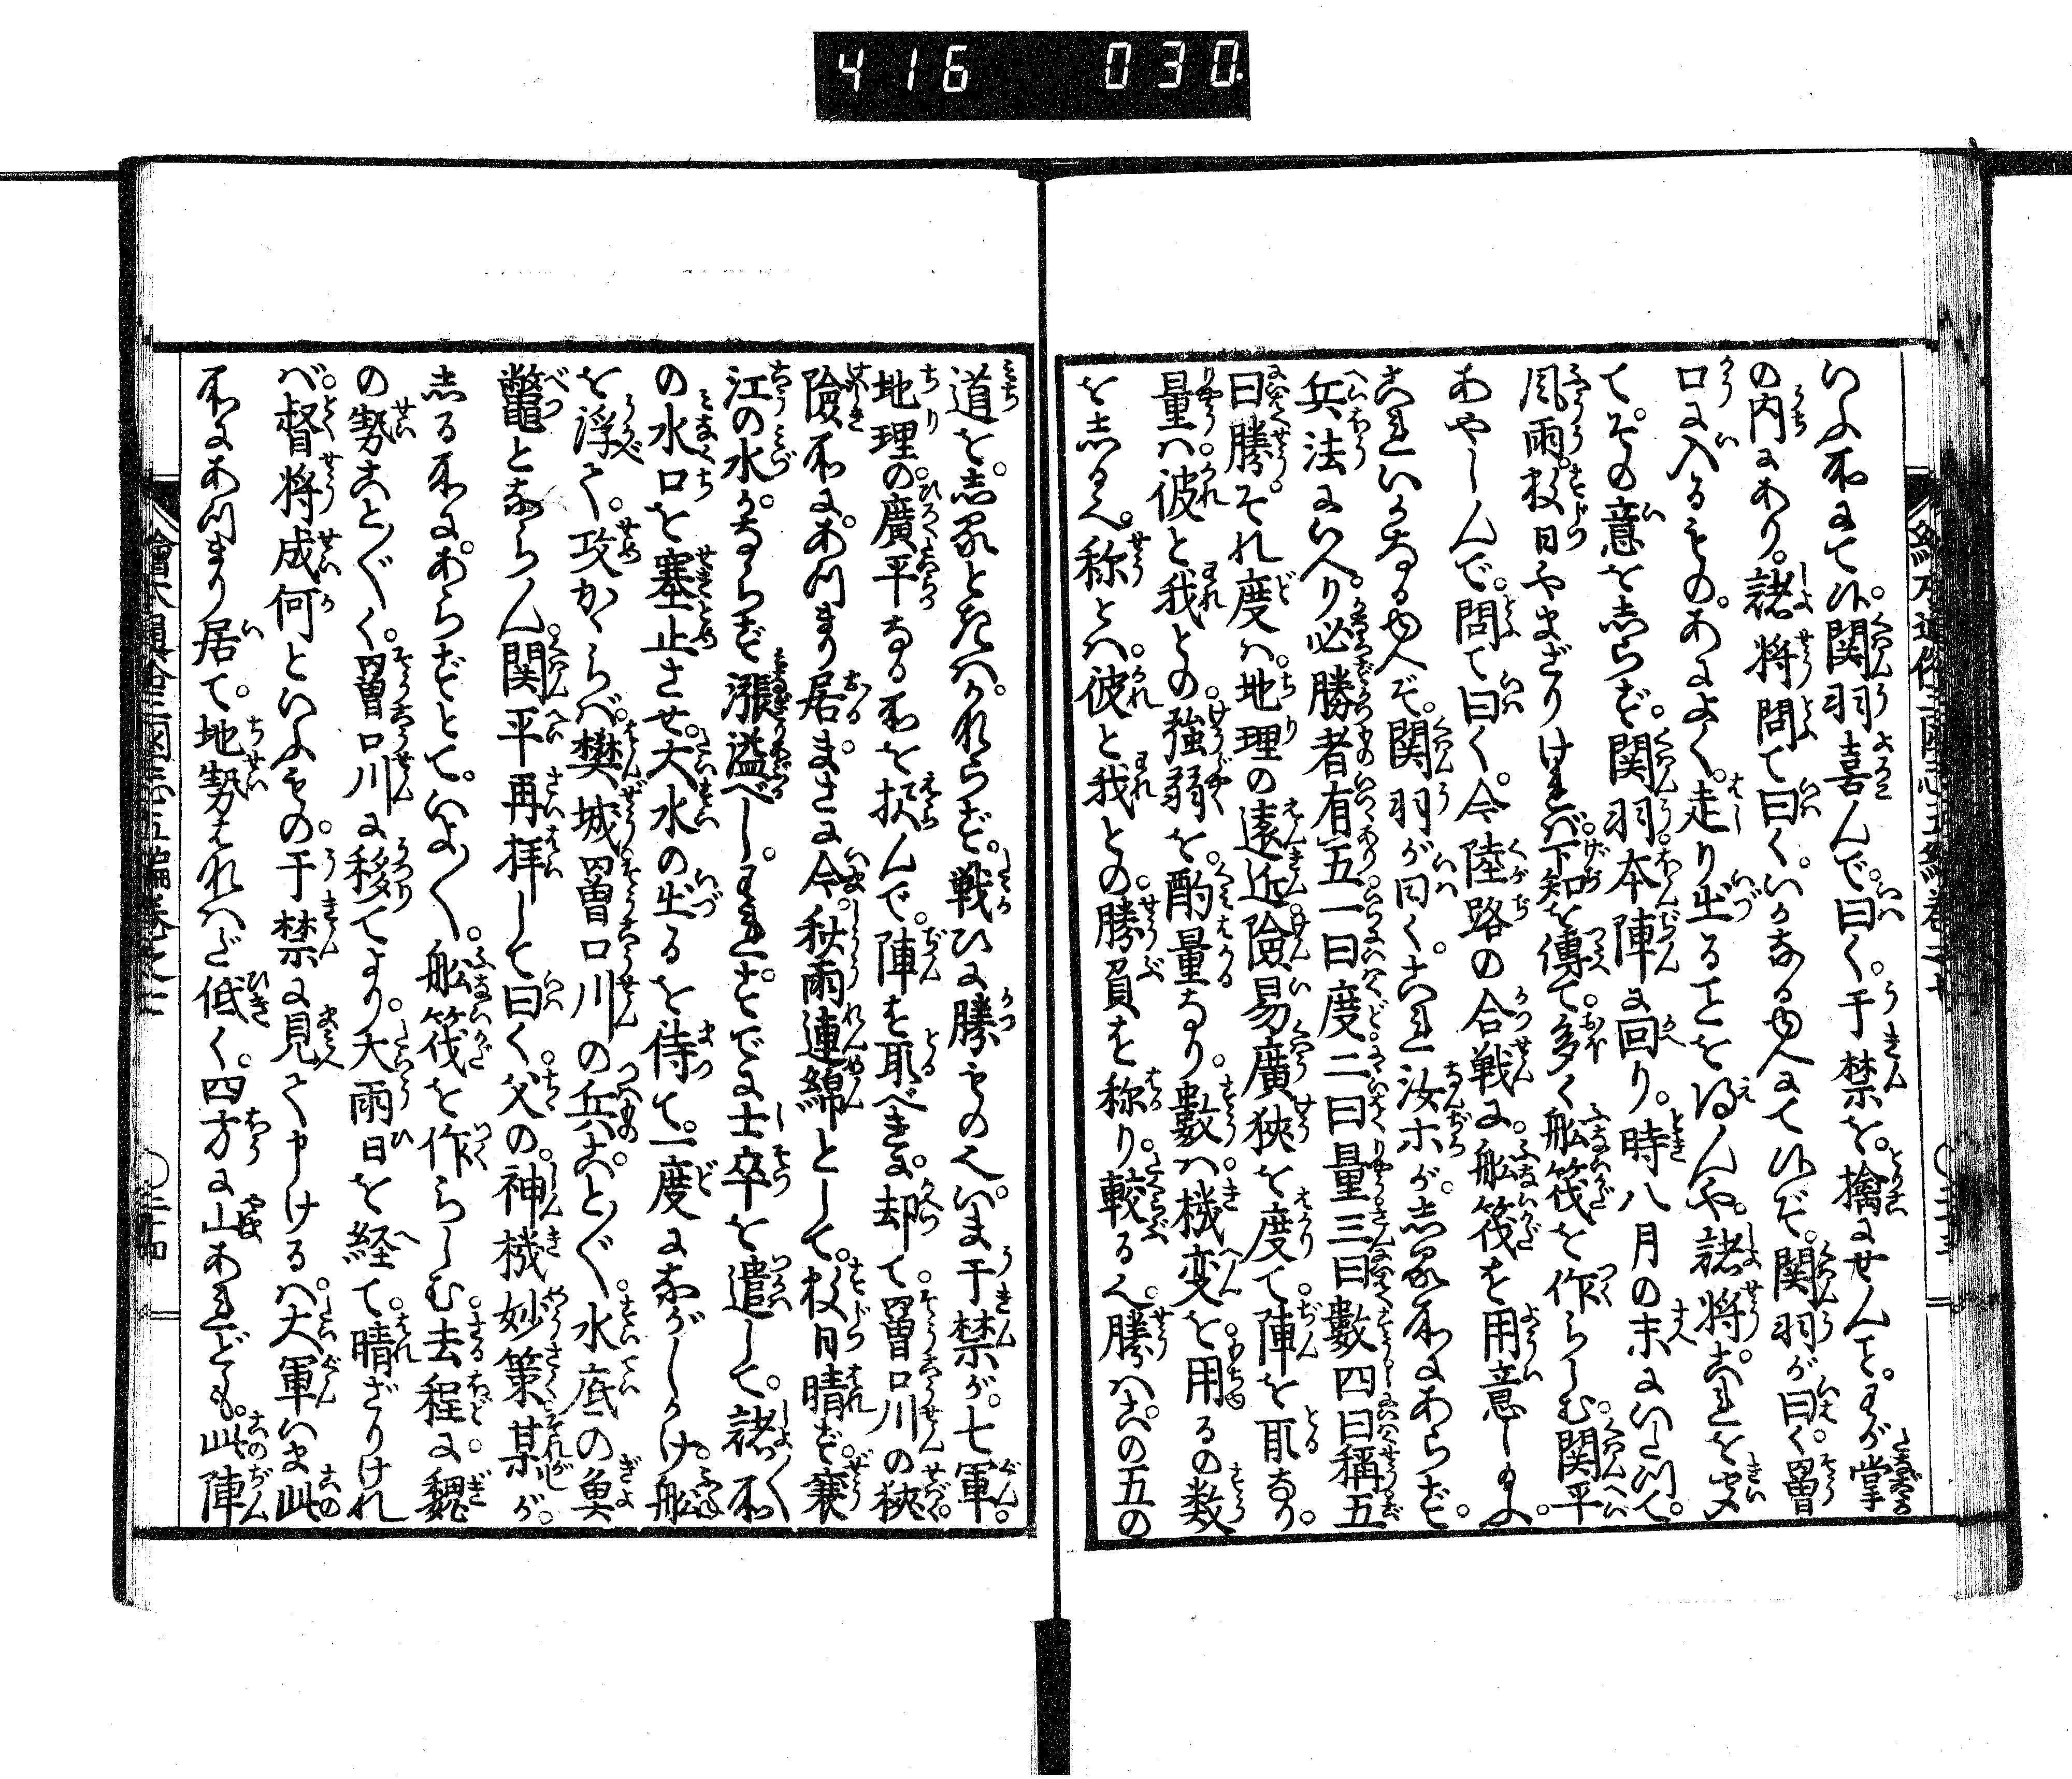 416 030.
いふ所にて候。関羽喜んで曰く。于禁を。擒にせんこと。わが掌
の内にあり。諸将問て曰く。いかなるゆへにて候ぞ。関羽が曰く罾
口に入るもの。あによく。走り出ることを得んや。諸将。これを聞
て。その意を志らず。関羽。本陣に回り。時八月の末にいたつて。
風雨。数日やまざりければ。下知を傳て。多く舩筏を作らしむ。関平
あやしんで。問て曰く。今陸路の合戦に。舩筏を用意し玉ふ。
これいかなるゆへぞ。関羽が曰く。これ汝ホが。志る所にあらず。
兵法にいへり。必勝者有五一曰度二曰量三曰數四曰稱五
曰勝。それ度は。地理の遠近。險易廣狹を度て。陣を取なり。
量は。彼と我との。強弱を。酌量なり。數は。機変を。用るの数
を志るへ。称とは。彼と我との。勝負を称り。較るへ。勝は。この五の
道を。志るときは。かならず。戦ひに勝ものへ。いま于禁が。七軍。
地理の。廣平なる所を択んで。陣を取べきに。却て。罾口川の狹
險所に。あつまり居。まさに今。秋雨連綿として。数日晴ず。襄
江の水。かならず漲溢べし。われ。すでに士卒を遣して。諸〱所
の水口を塞止させ。大水の出るを待て。一度にながしかけ。舩
を浮べて。攻かゝらば。樊城罾口川の兵。こと〲く。水底の魚
鼈とならん。関平再拝して曰く。父の。神機妙策。某が。
志る所に。あらずとて。いよ〱。舩筏を作らしむ。去程に。魏
の勢こと〲く。罾口川に移てより。大雨日を経て。晴ざりけれ
ば。督将成何といふもの。于禁に見て申けるは。大軍いま此
所にあつまり居て。地勢はなはだ低く。四方に山あれども。此陣